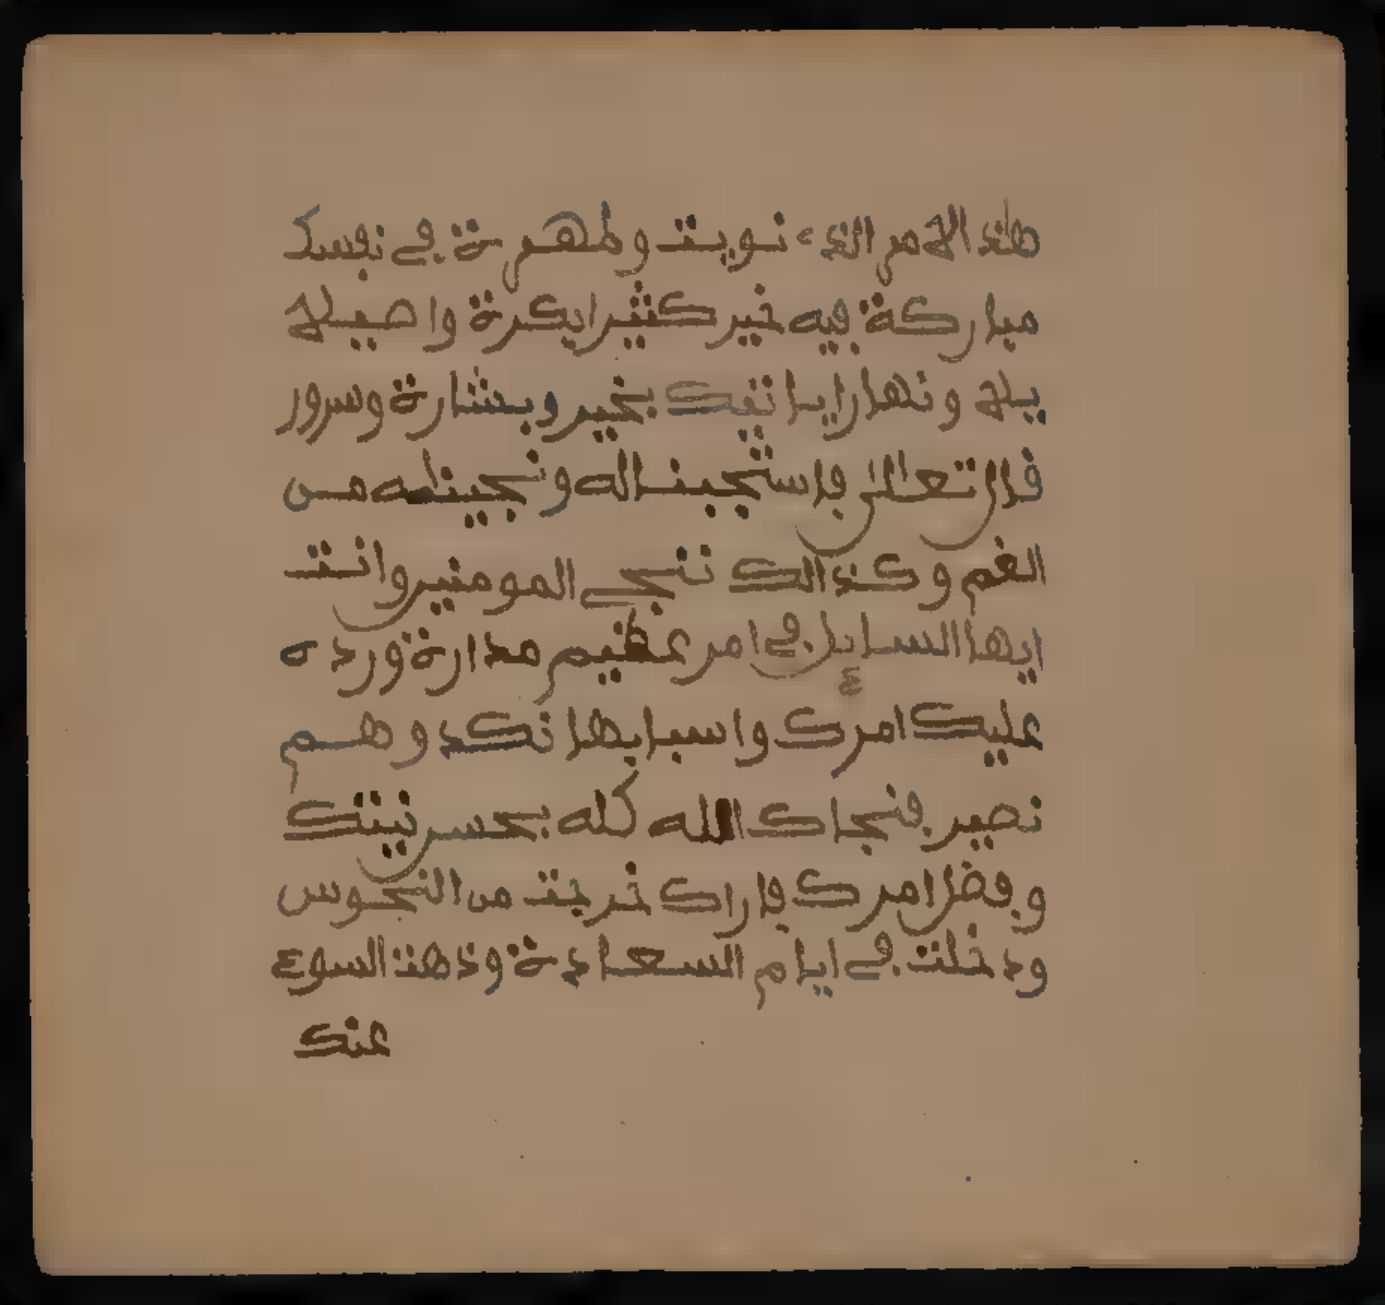 هٰذ الامر الذ نويت وظهرة في نفسك
مباركة فيه خير كثيرا بكرة واصيلا
يلا ونهارا ياتيك بخير وبشارة وسرور
قال تعالى فاستجبنا له ونجينٰه من
الغم وكذالك ننجي المومنين وانت
ايها السايل في امر عظيم مدارة ورده
عليك امرك واسبابها نكد وهم
نصير فنجاك الله كله بحسن نيتك
وفضل امرك فاراك خرجت من النحوس
ودخلت في ايام السعادة وذهت السوء
عنك